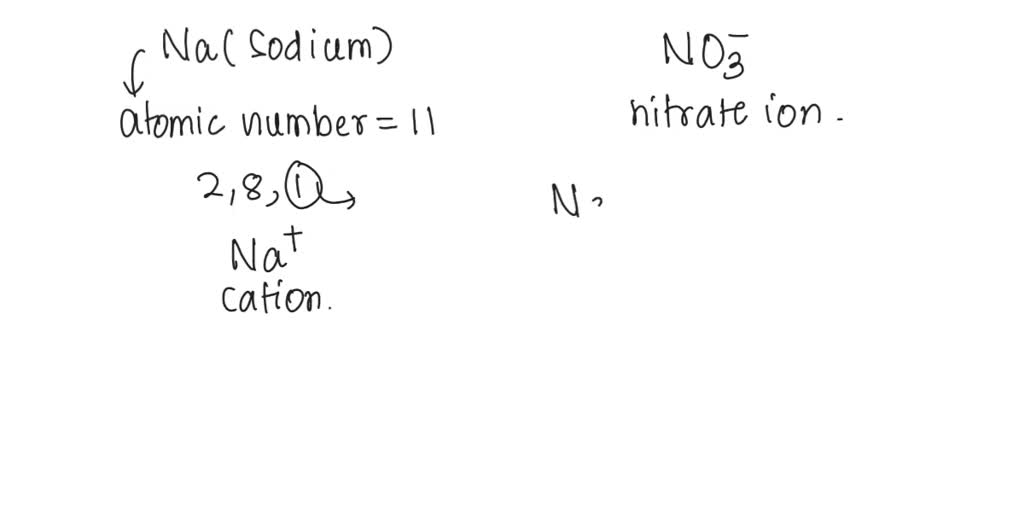 Na (Sodium)
atomic number = 11
2, 8, 1
Na⁺
cation.
NO₃⁻
nitrate ion.
N